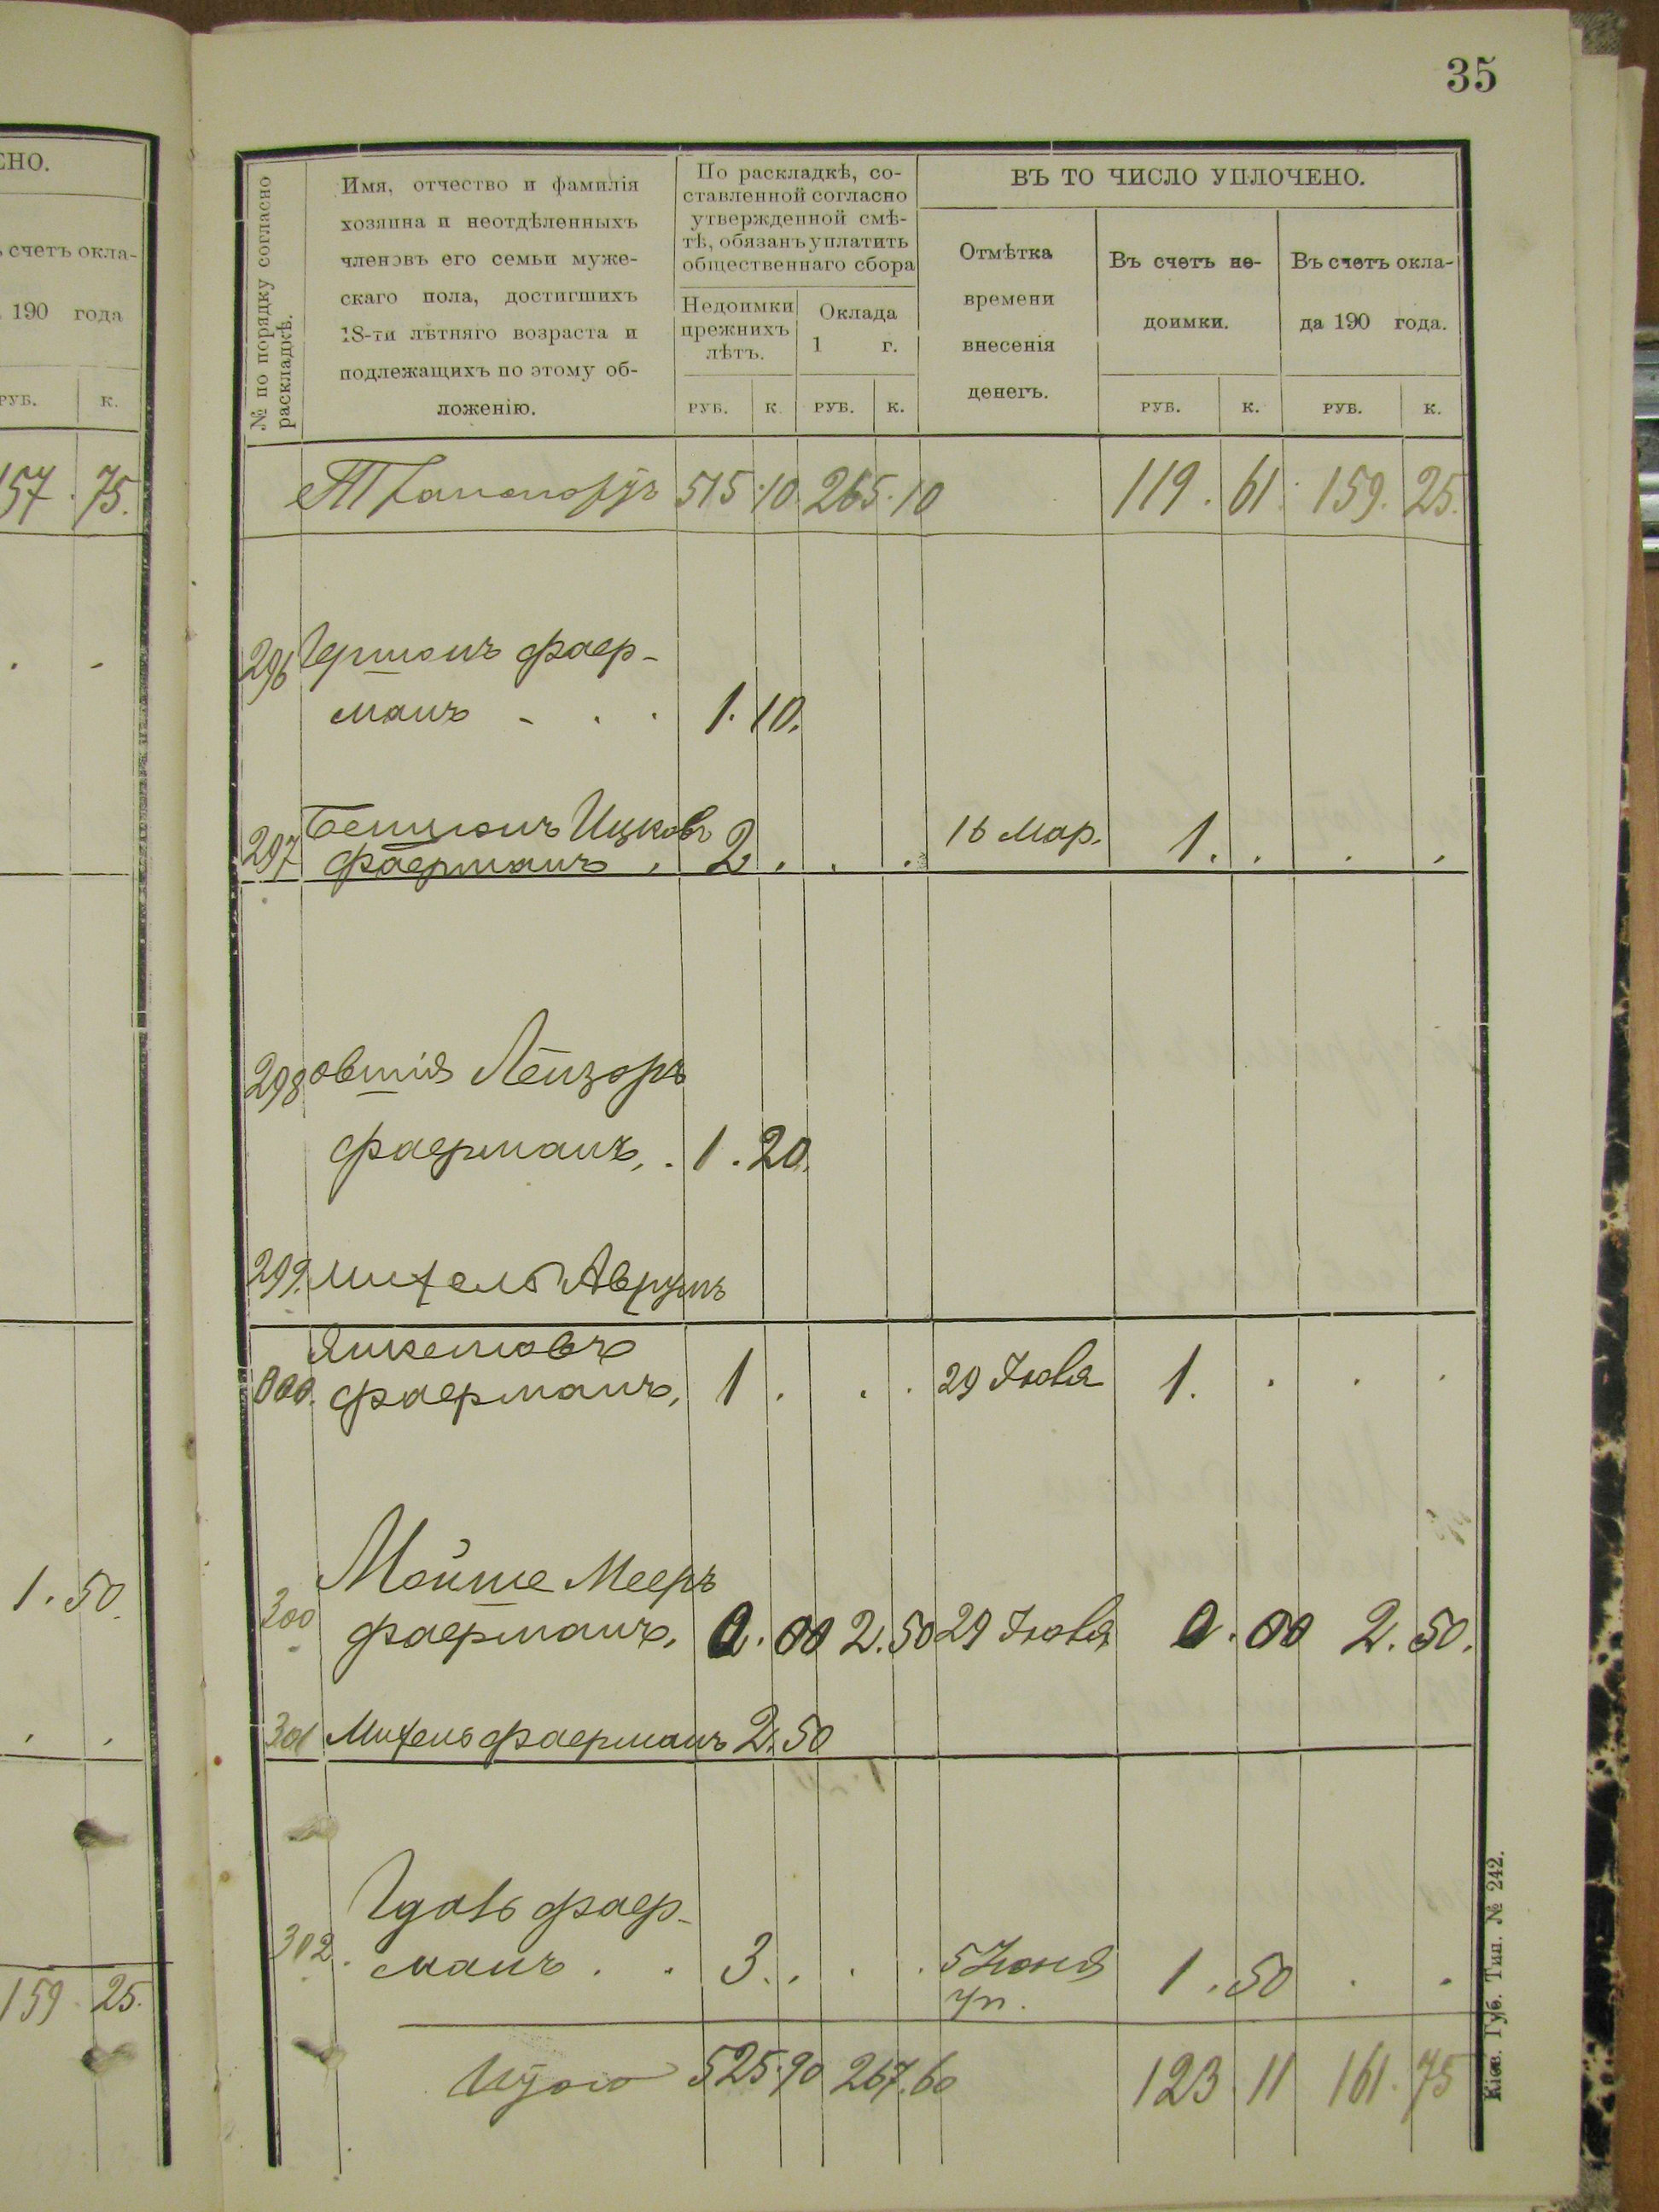 35
ЕНО.
ъ счетъ окла-
190 года
РУБ. К.
157. 75.
1. 50.
159. 25.
№ по порядку согласно
раскладкѣ.
Имя, отчество и фамилія
хозяина и неотдѣленныхъ
членовъ его семьи муже-
скаго пола, достигшихъ
18-ти лѣтняго возраста и
подлежащихъ по этому об-
ложенію.
По раскладкѣ, со-
ставленной согласно
утвержденной смѣ-
тѣ, обязанъ уплатить
общественнаго сбора
Недоимки
прежнихъ
лѣтъ.
Оклада
1 г.
ВЪ ТО ЧИСЛО УПЛОЧЕНО.
Отмѣтка
времени
внесенія
денегъ.
Въ счетъ не-
доимки.
Въ счетъ окла-
да 190 года.
РУБ. К. РУБ. К. РУБ. К. РУБ. К.
Транспортъ 515. 10. 265. 10 119. 61. 159. 25.
296 Гершонъ Фаер-
манъ - . . 1. 10.
297 Бенціонъ Ицковъ
Фаерманъ . 2. . . 16 Мар. 1. . . .
298 Овшія Лейзоръ
Фаерманъ, . 1. 20.
299. Михель Аврумъ
Янкелювъ
000. Фаерманъ, 1 . . . 29 Іюля 1. . . .
300 Мойше Мееръ
Фаерманъ, 0. 00 2. 50 29 Іюля 0. 00 2. 50.
301 Михель Фаерманъ 2. 50
302. Гдаль Фаер-
манъ . . 3. . . . 5 Іюня 1. 50 . .
уп.
Итого 525. 90 267. 60 123. 11 161. 75
Кіев. Губ. Тип. № 242.